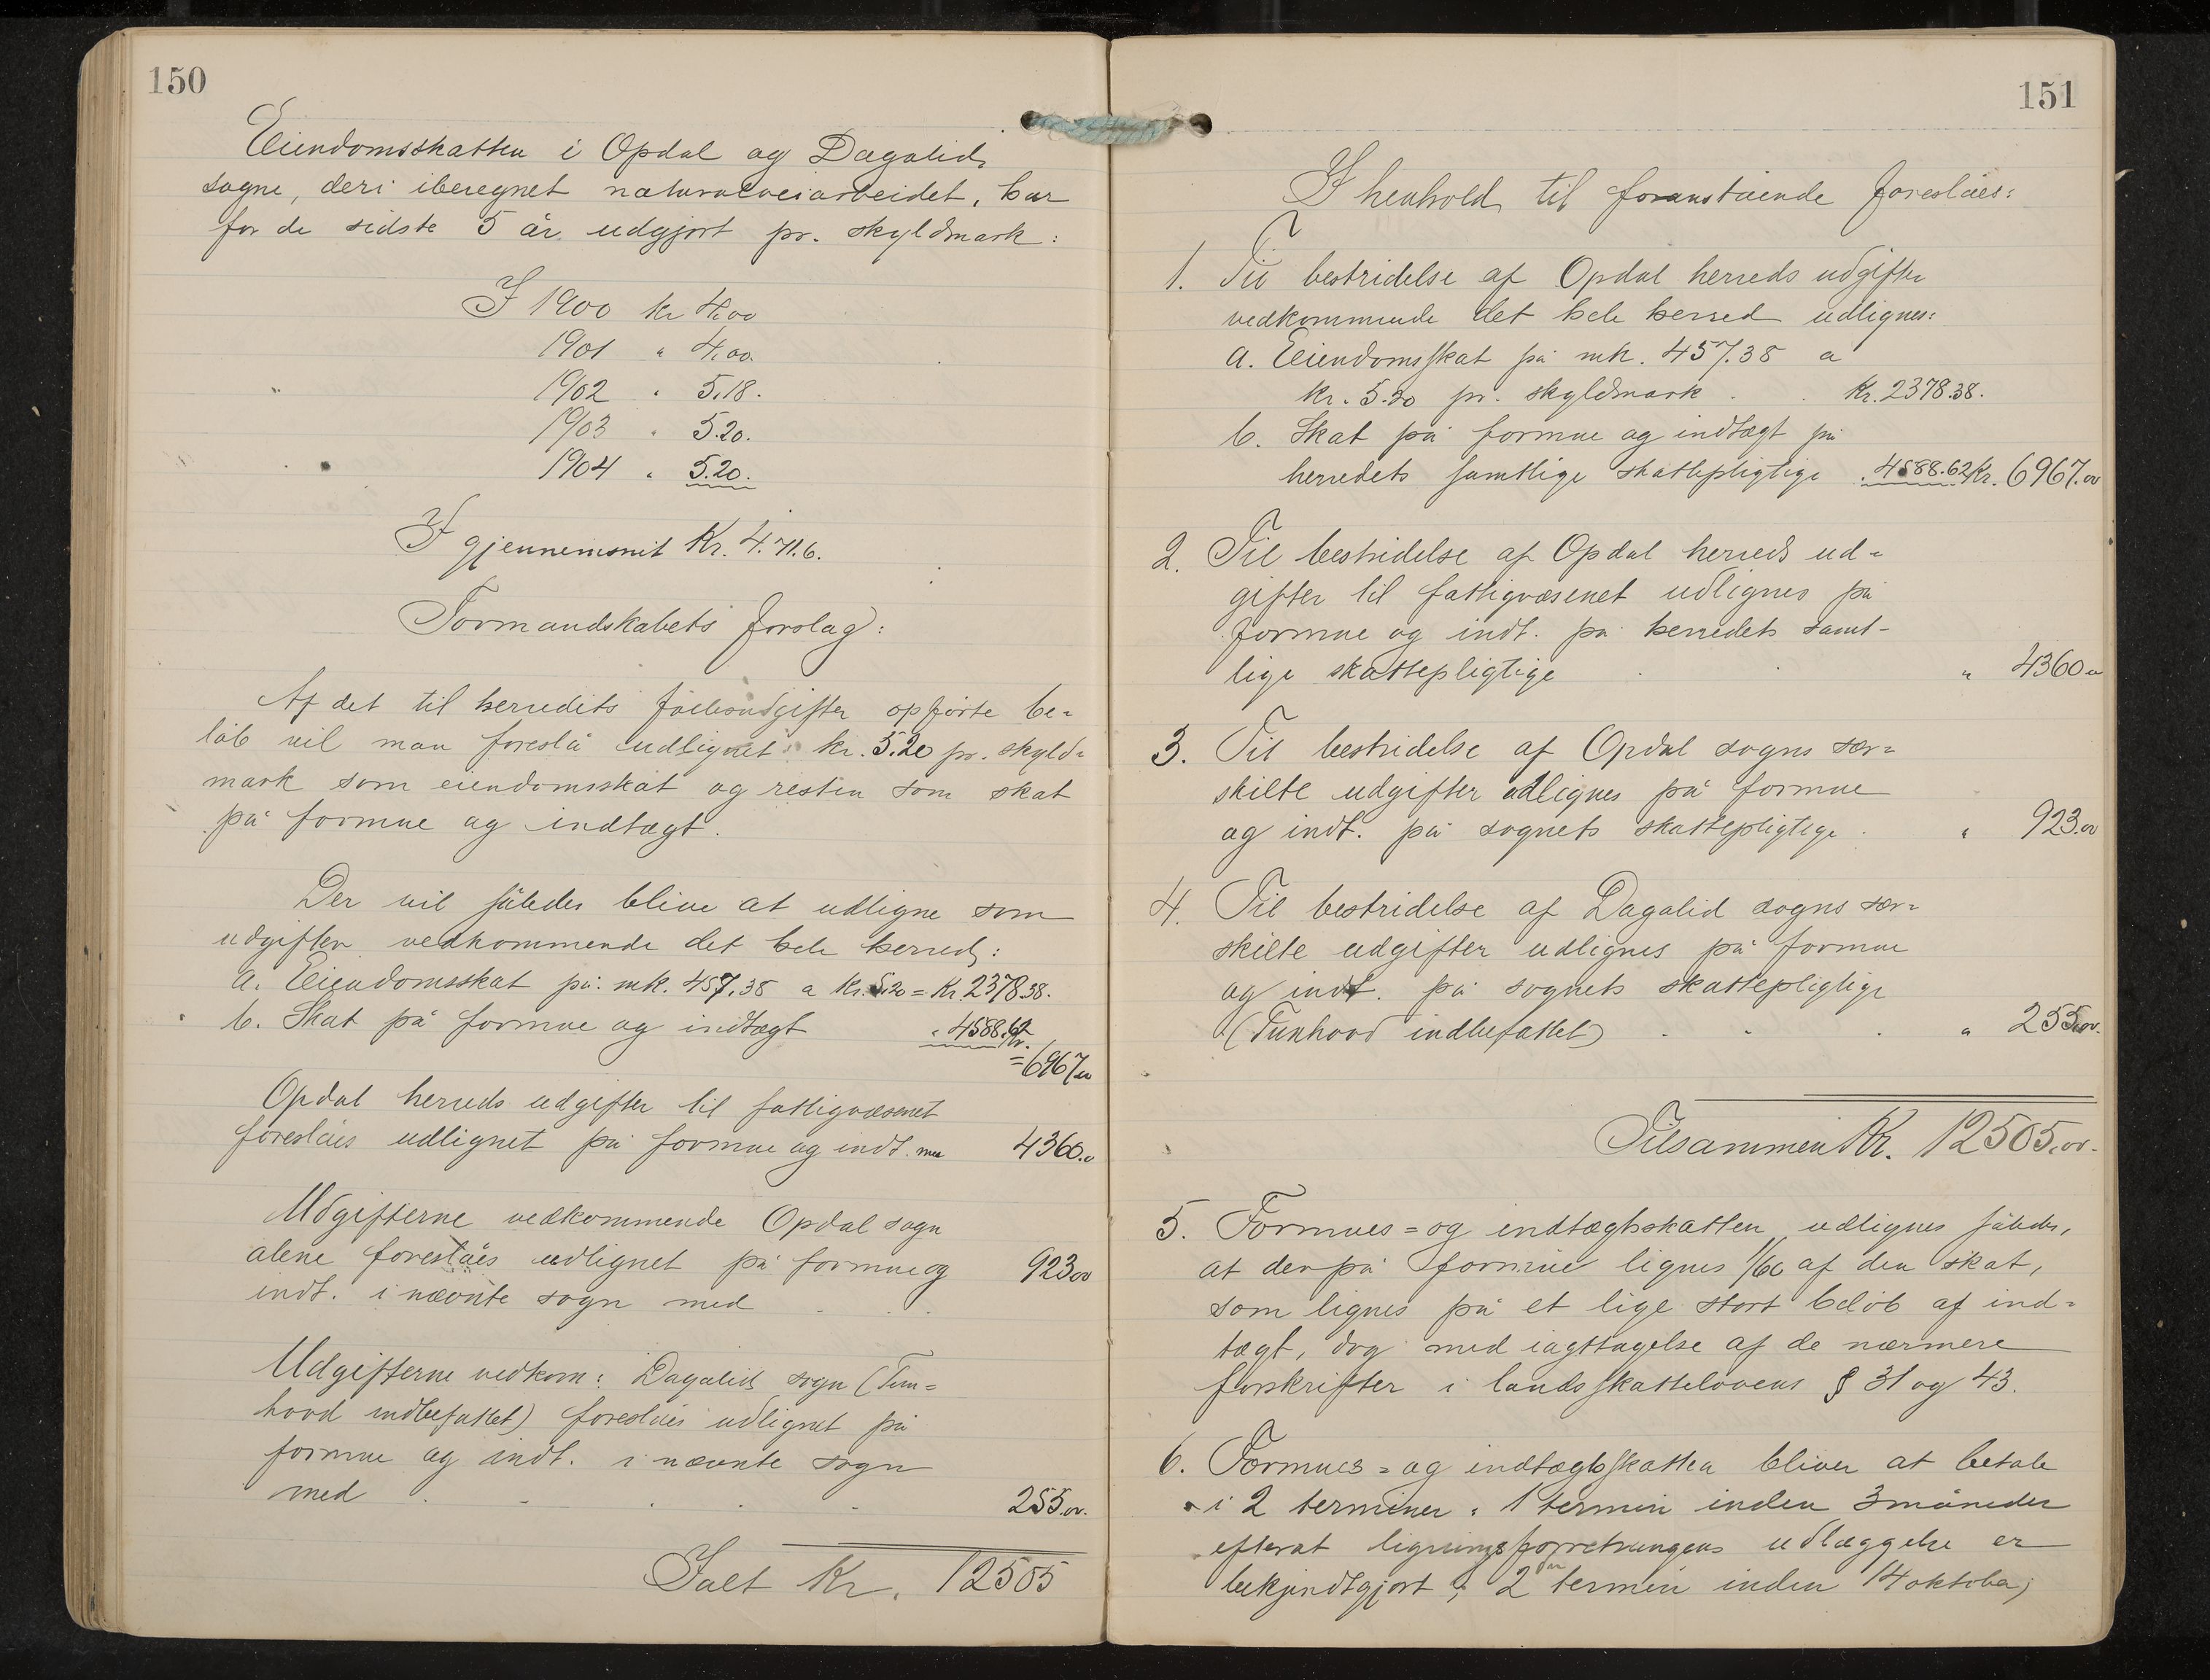 150
Eiendomsskatten i Opdal og Dagalids
sogne, deri iberegnet naturalveiarbeidet, har
for de sidste 5 år udgjort pr. skyldmark:
I 1900 kr 4.00
1901 " 4.00.
1902 " 5.18.
1903 " 5.20.
1904 " 5.20.
I gjennemsnit Kr. 4.71.6.
Formandskabets forslag:
Af det til herredets fællesudgifter opførte be=
løb vil man foreslå udlignet kr. 5.20 pr. skyld=
mark som eiendomsskat og resten som skat
på formue og indtægt.
Der vil således blive at udligne som
udgifter vedkommende det hele herred:
a. Eiendomsskat på mk. 457.38 a kr. 5.20 = Kr. 2378.38.
b. Skat på formue og indtægt " 4588.62
Kr.
= 6967.00
Opdal herreds udgifter til fattigvæsenet
foreslåes udlignet på formue og indt. med 4360.00
Udgifterne vedkommende Opdal sogn
alene foreslåes udlignet på formue og 923.00
indt. i nævnte sogn med . . .
Udgifterne vedkom: Dagalids sogn (Tun=
hovd indbefattet) foreslåes udlignet på
formue og indt. i nævnte sogn
med . . . . . 255.00.
Ialt Kr. 12505
151
I henhold til foranstående foreslåes:
1. Til bestridelse af Opdal herreds udgifter
vedkommende det hele herred udlignes:
a. Eiendomsskat på mk. 457.38 a
kr. 5.20 pr. skyldmark . . Kr. 2378.38.
b. Skat på formue og indtægt på
herredets samtlige skattepligtige " 4588.62 Kr. 6967.00
2. Til bestridelse af Opdal herreds ud=
gifter til fattigvæsenet udlignes på
formue og indt. på herredets samt-
lige skattepligtige . . " 4360.00
3. Til bestridelse af Opdal sogns sær=
skilte udgifter udlignes på formue
og indt. på sognets skattepligtige . " 923.00
4. Til bestridelse af Dagalid sogns sær=
skilte udgifter udlignes på formue
og indt. på sognets skattepligtige
(Tunhovd indbefattet) . . . " 255.00.
Tilsammen Kr. 12505.00.
5. Formues= og indtægtsskatten udlignes således,
at der på formue lignes 1/60 af den skat,
som lignes på et lige stort beløb af ind=
tægt, dog med iagttagelse af de nærmere
forskrifter i landsskattelovens § 31 og 43.
6. Formues= og indtægtsskatten bliver at betale
i 2 terminer: 1 termin inden 3 måneder
efterat ligningsforretningens udlæggelse er
bekjendtgjort; 2den termin inden 14 oktober,